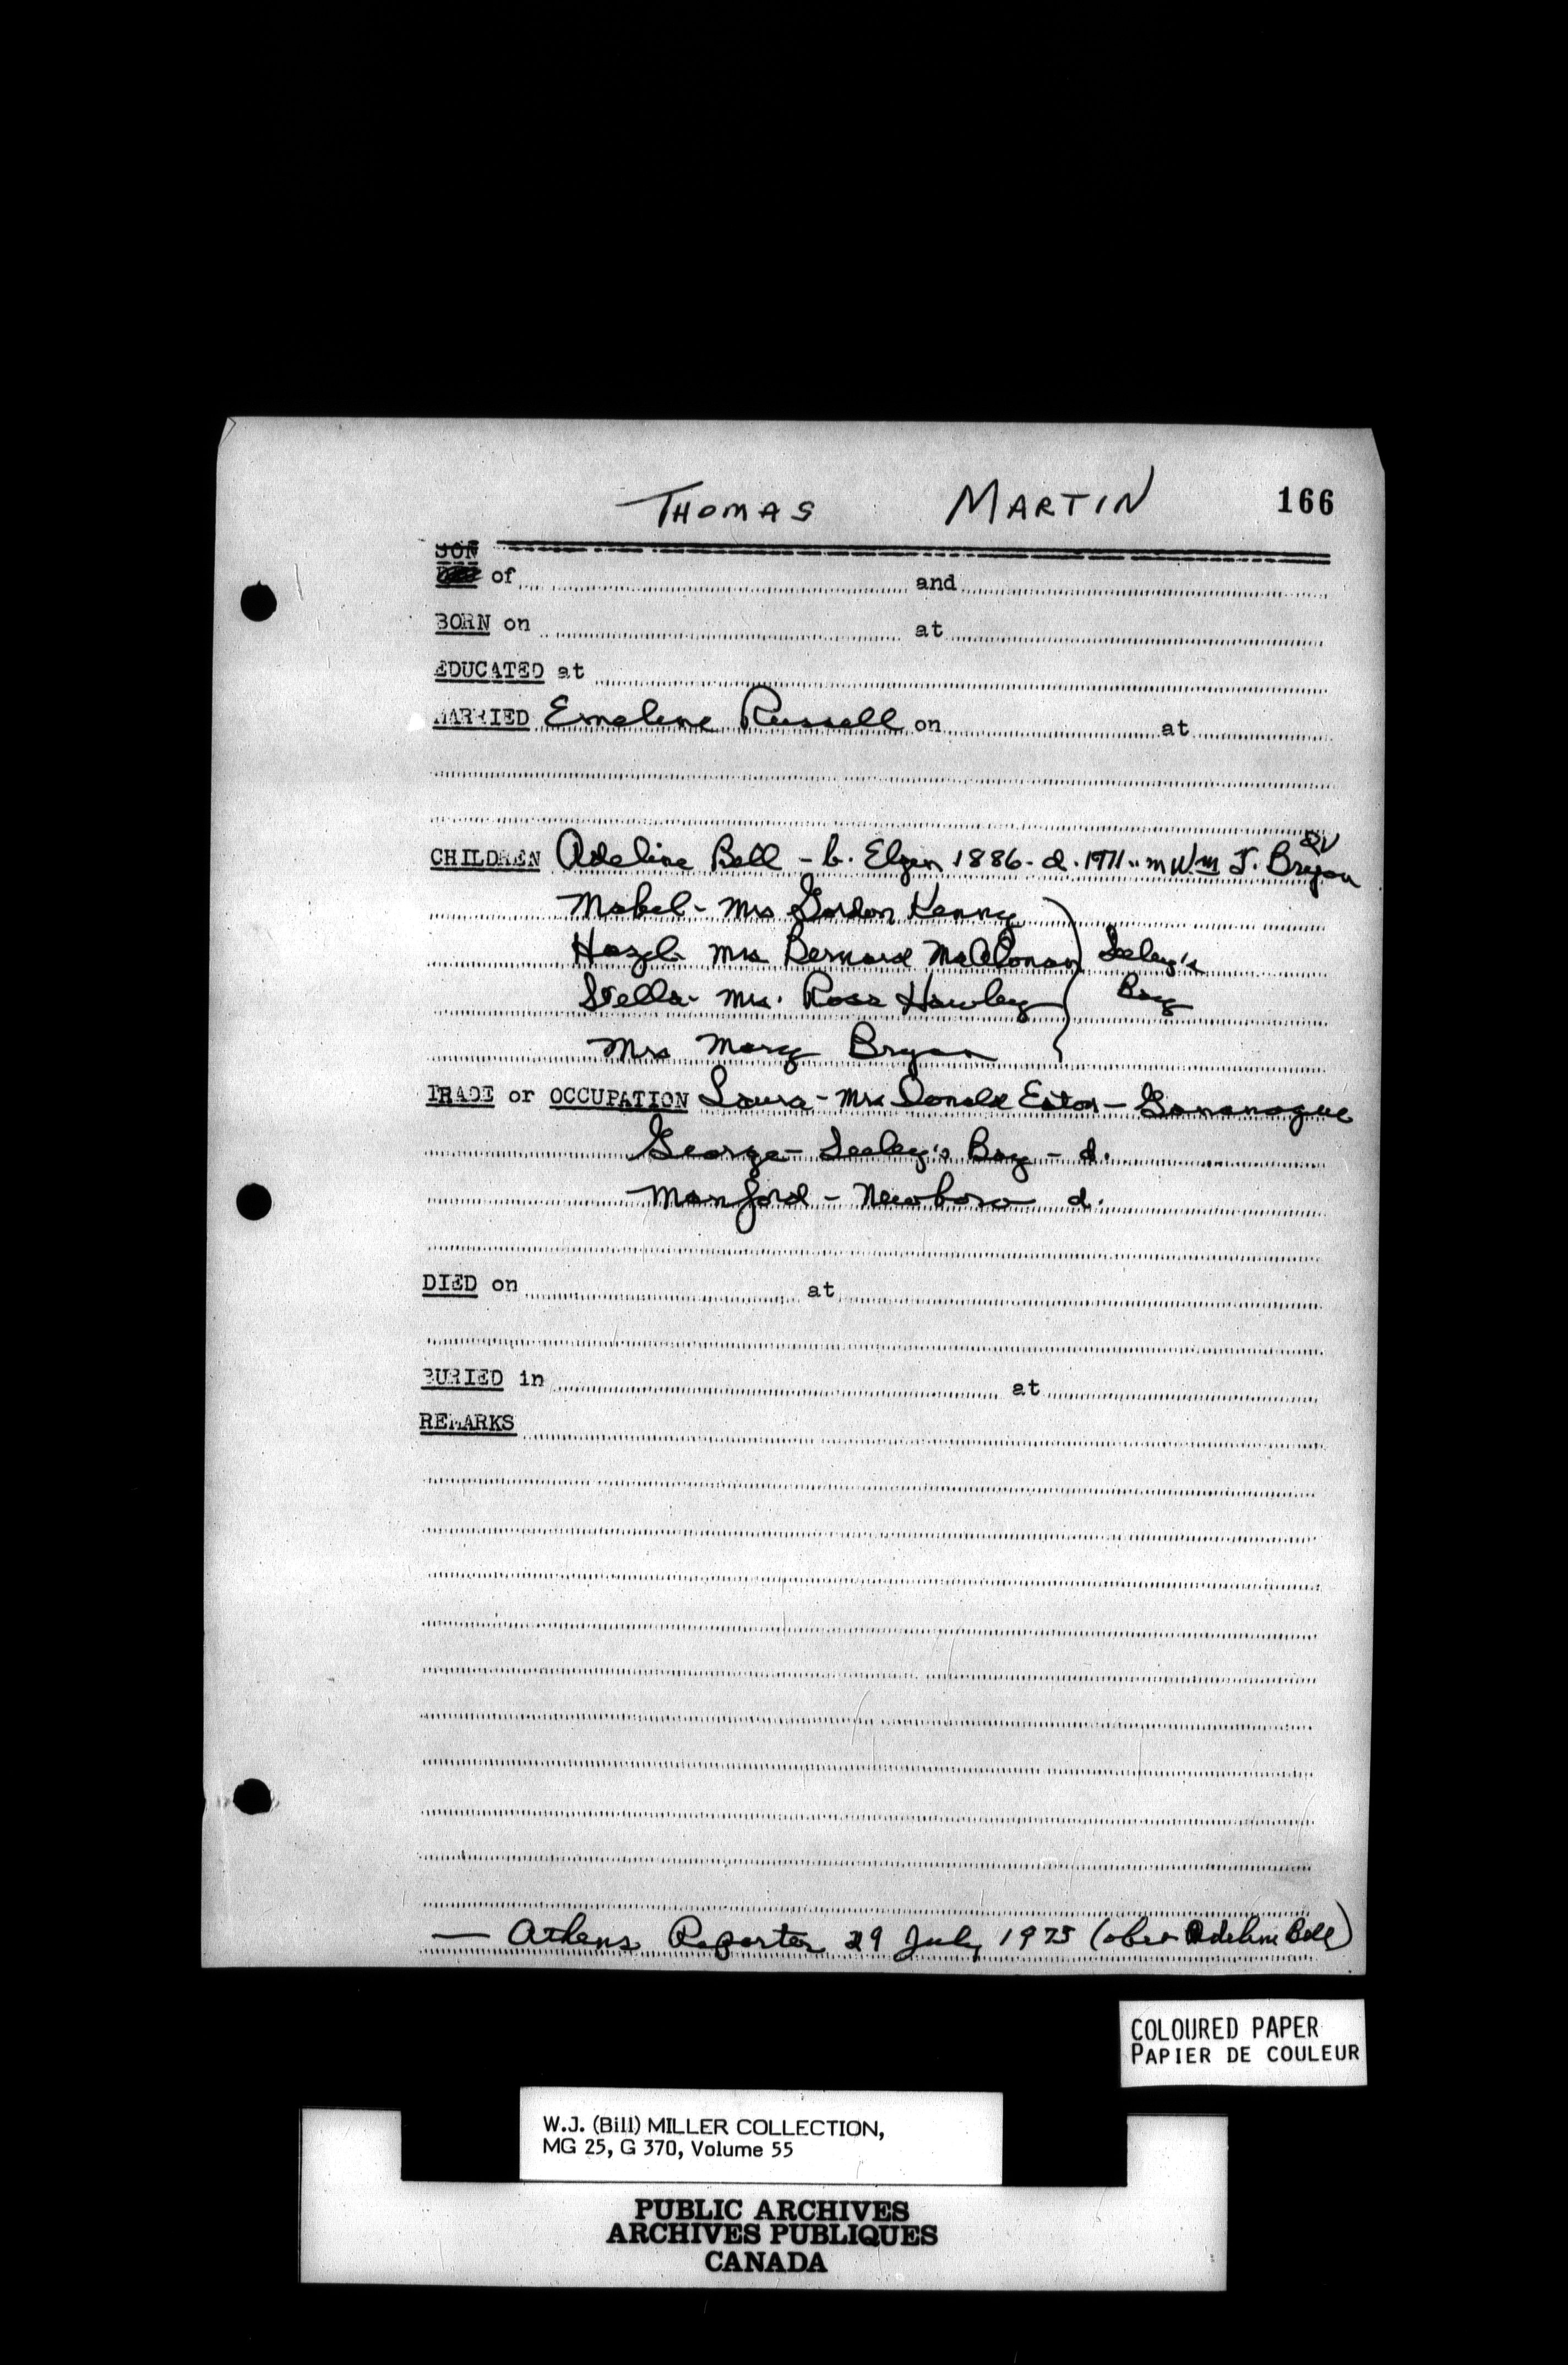 THOMAS MARTIN 166
SON
of and
BORN on at
EDUCATED at
MARRIED Emeline Russell on at
QV
CHILDREN Adeline Bell - b. Elgin 1886 - d. 1971 - m Wm J. Bryan
Mabel - Mrs Gordon Kenny
Hazel - Mrs Bernard McAlonan Seeley's
Stella - Mrs. Ross Hawley Bay
Mrs Mary Bryan
TRADE or OCCUPATION Laura - Mrs Donald Eaton - Gananoque
George - Seeley's Bay - d.
Manford - Newboro d.
DIED on at
BURIED in at
REMARKS
— Athens Reporter 29 July 1975 (obit Adeline Bell)
COLOURED PAPER
PAPIER DE COULEUR
W.J. (Bill) MILLER COLLECTION,
MG 25, G 370, Volume 55
PUBLIC ARCHIVES
ARCHIVES PUBLIQUES
CANADA